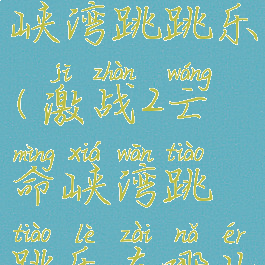 峡湾跳跳乐
jī zhàn wáng
(激战2亡
mìng xiá wān tiào
命峡湾跳
tiào lè zài nǎ ér
跳乐在哪儿